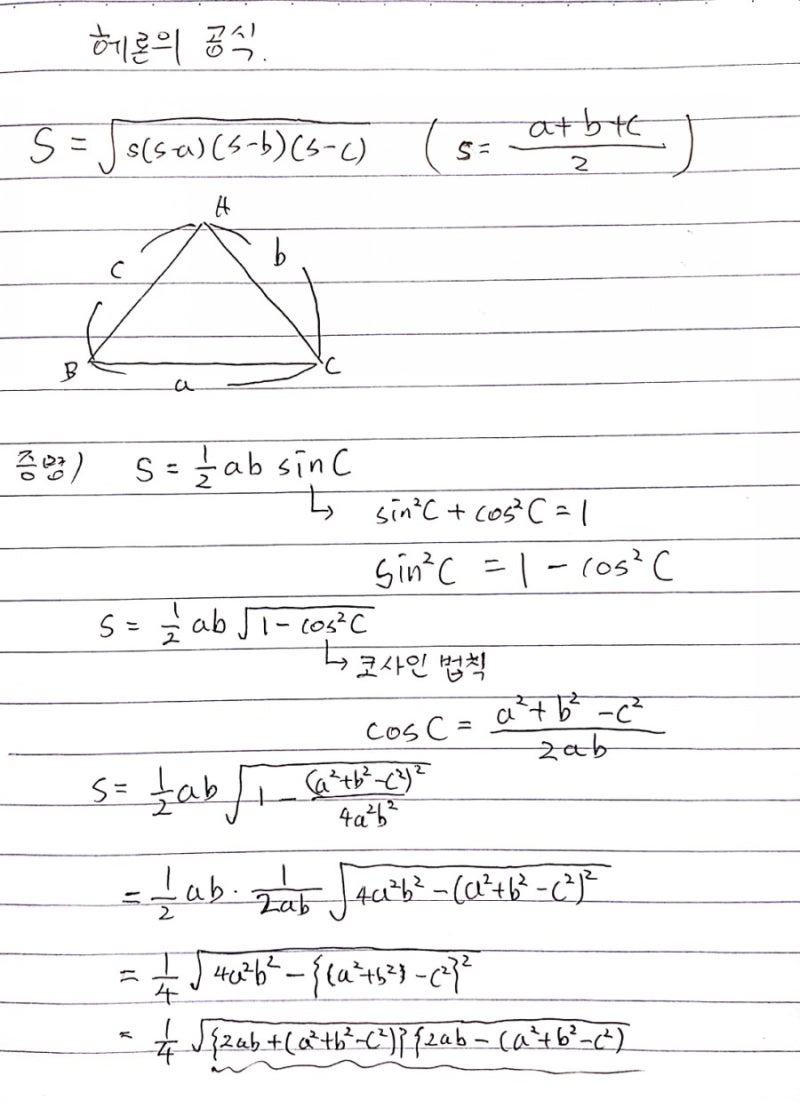 헤론의 공식.
S = √s(s-a)(s-b)(s-c) ( s = (a+b+c)/2 )
A
c b
B C
a
증명) S = 1/2 ab sinC
↳ sin²C + cos²C = 1
sin²C = 1 - cos²C
S = 1/2 ab √1 - cos²C
↳ 코사인 법칙
cos C = (a² + b² - c²)/2ab
S = 1/2 ab √1 - (a²+b²-c²)²/4a²b²
= 1/2 ab · 1/2ab √4a²b² - (a²+b²-c²)²
= 1/4 √4a²b² - {(a²+b²) - c²}²
= 1/4 √{2ab + (a²+b²-c²)}{2ab - (a²+b²-c²)